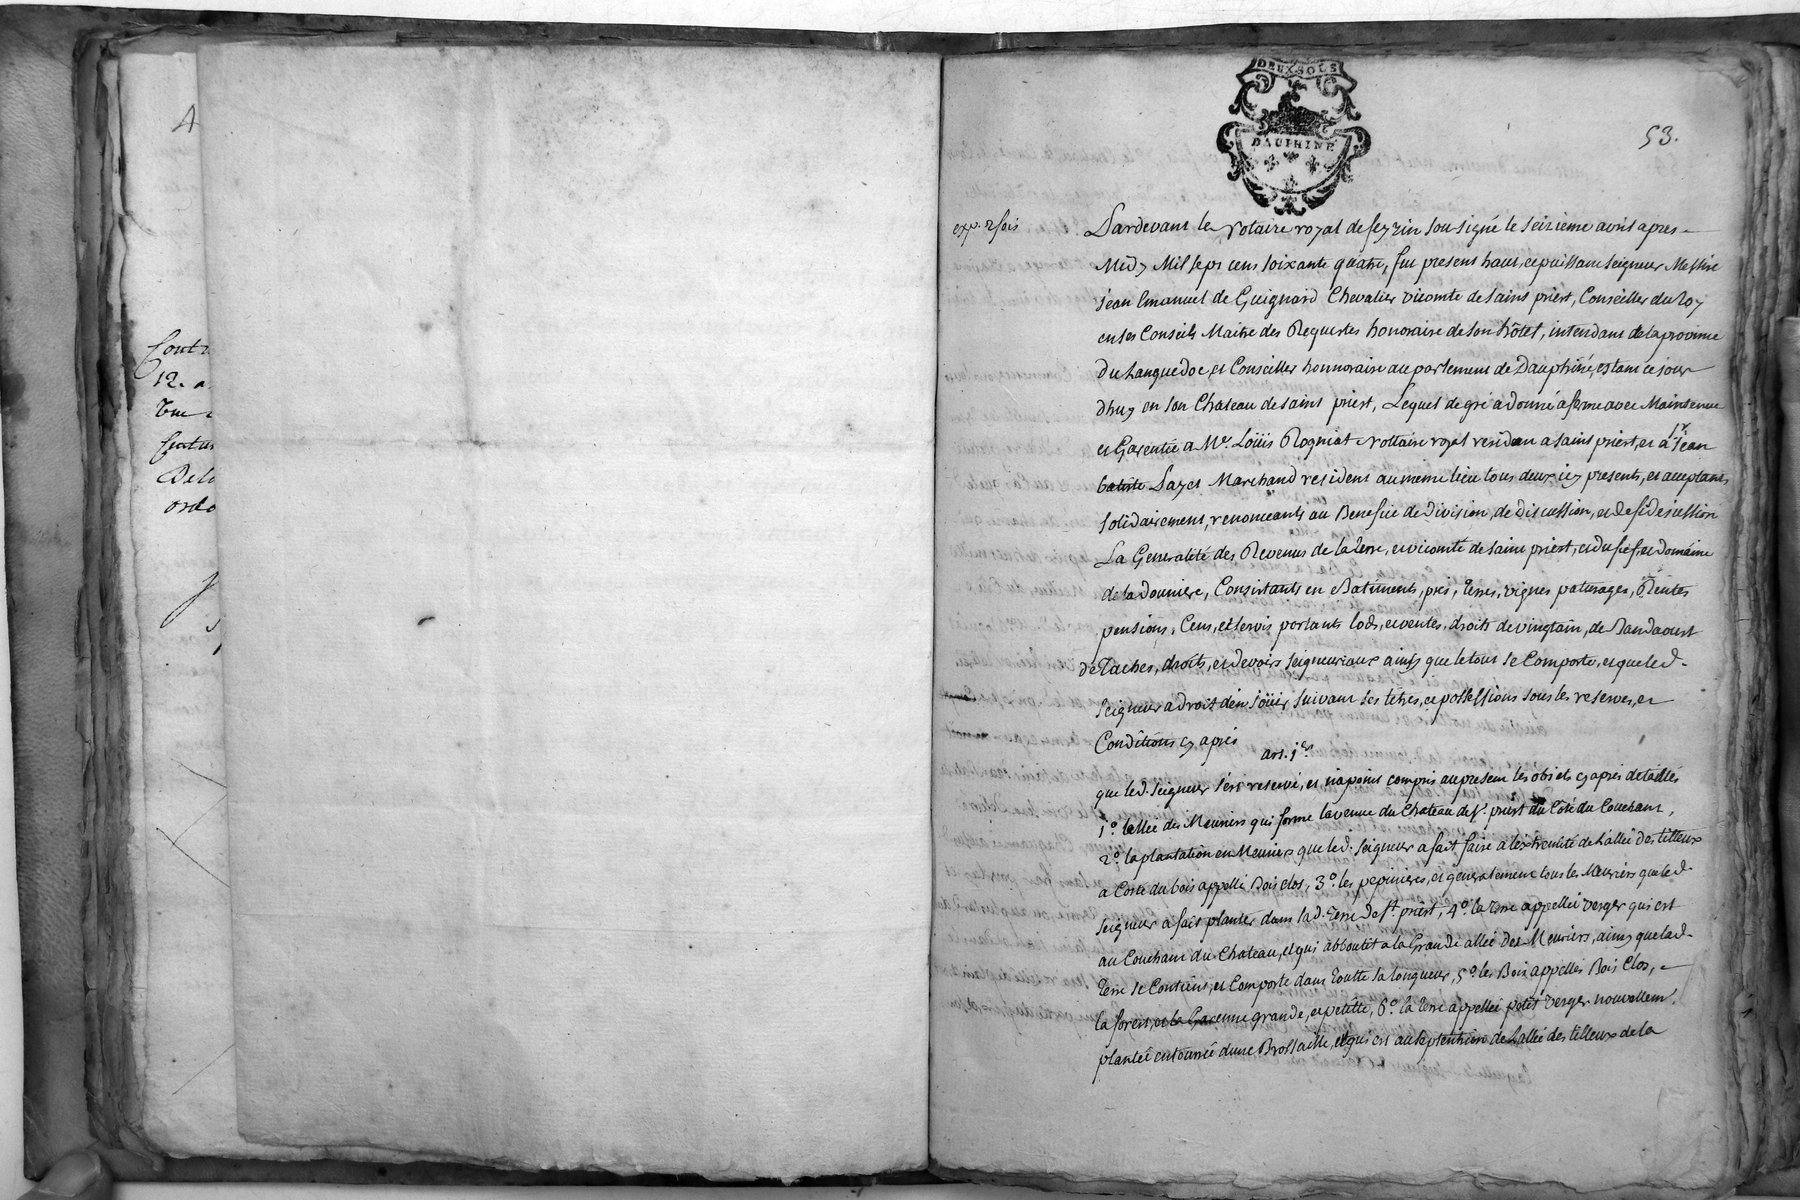 4
Contr
12. a
ordo
DEUX SOLS
DAUPHINÉ
53.
exp. 2 fois
Pardevant le Notaire royal de feyzin sousigné le seizieme avril apres
Midy Mil sept cens soixante quatre, fut present haut, et puissant seigneur Messire
jean Emanuel de Guignard Chevalier vicomte de saint priest, Conseiller du roy
en ses Conseils Maitre des Requestes honoraire de son hôtel, intendant de la province
du Languedoc, et Conseiller honnoraire au parlement de Dauphiné, estant ce jour
dhuy en son Chateau de saint priest, Lequel de gré a donné a ferme avec Maintenue
et Garentie a Me. Loüis Rogniat Nottaire royal residant a saint priest, et a sr. jean
batiste Payet Marchand resident au meme lieu tous deux icy presents, et acceptants
solidairement, renonceants au Benefice de division, de discussion, et de fidejussion
La Generalité des Revenus de la terre, et vicomté de saint priest, et du fief, et domaine
de la Douniere, Consistants en Batiments, prés, terres, vignes paturages, Rentes
pensions, Cens, et servis portants lods, et ventes, droits de vingtain, de
de Taches, droits, et devoirs seigneuriaux ainsy que le tout se Comporte, et que led.
seigneur a droit d'en joüir, suivant ses titres, et possessions sous les reserves, et
Conditions cy aprés
art. 1er
que led. seigneur s'est reservé, et n'a point compris au present les objets cy aprés detaillés
1º. lallée des Meuriers qui forme lavenue du Chateau de St. priest du Coté du Couchant,
2º. la plantation en Meuriers que led. seigneur a fait faire a lextremité de Lallée des tilleux
a Coste du bois appellé Bois clos, 3º. les pepinieres, et generalement tous les Meuriers que led.
seigneur a fait planter dans lad. Terre de St. priest, 4º. la terre appellée verger qui est
au Couchant du Chateau, et qui abboutit a la Grande allée des Meuriers, ainsy que lad.
terre se Contient, et Comporte dans toutte sa longueur, 5º. les Bois appellés Bois Clos,
la forest, et la Garenne grande, et petitte, 6º. la terre appellée petit verger nouvellemt.
plantée entourrée dune Brossaille, et qui est au septentrion de Lallée des tilleux de la